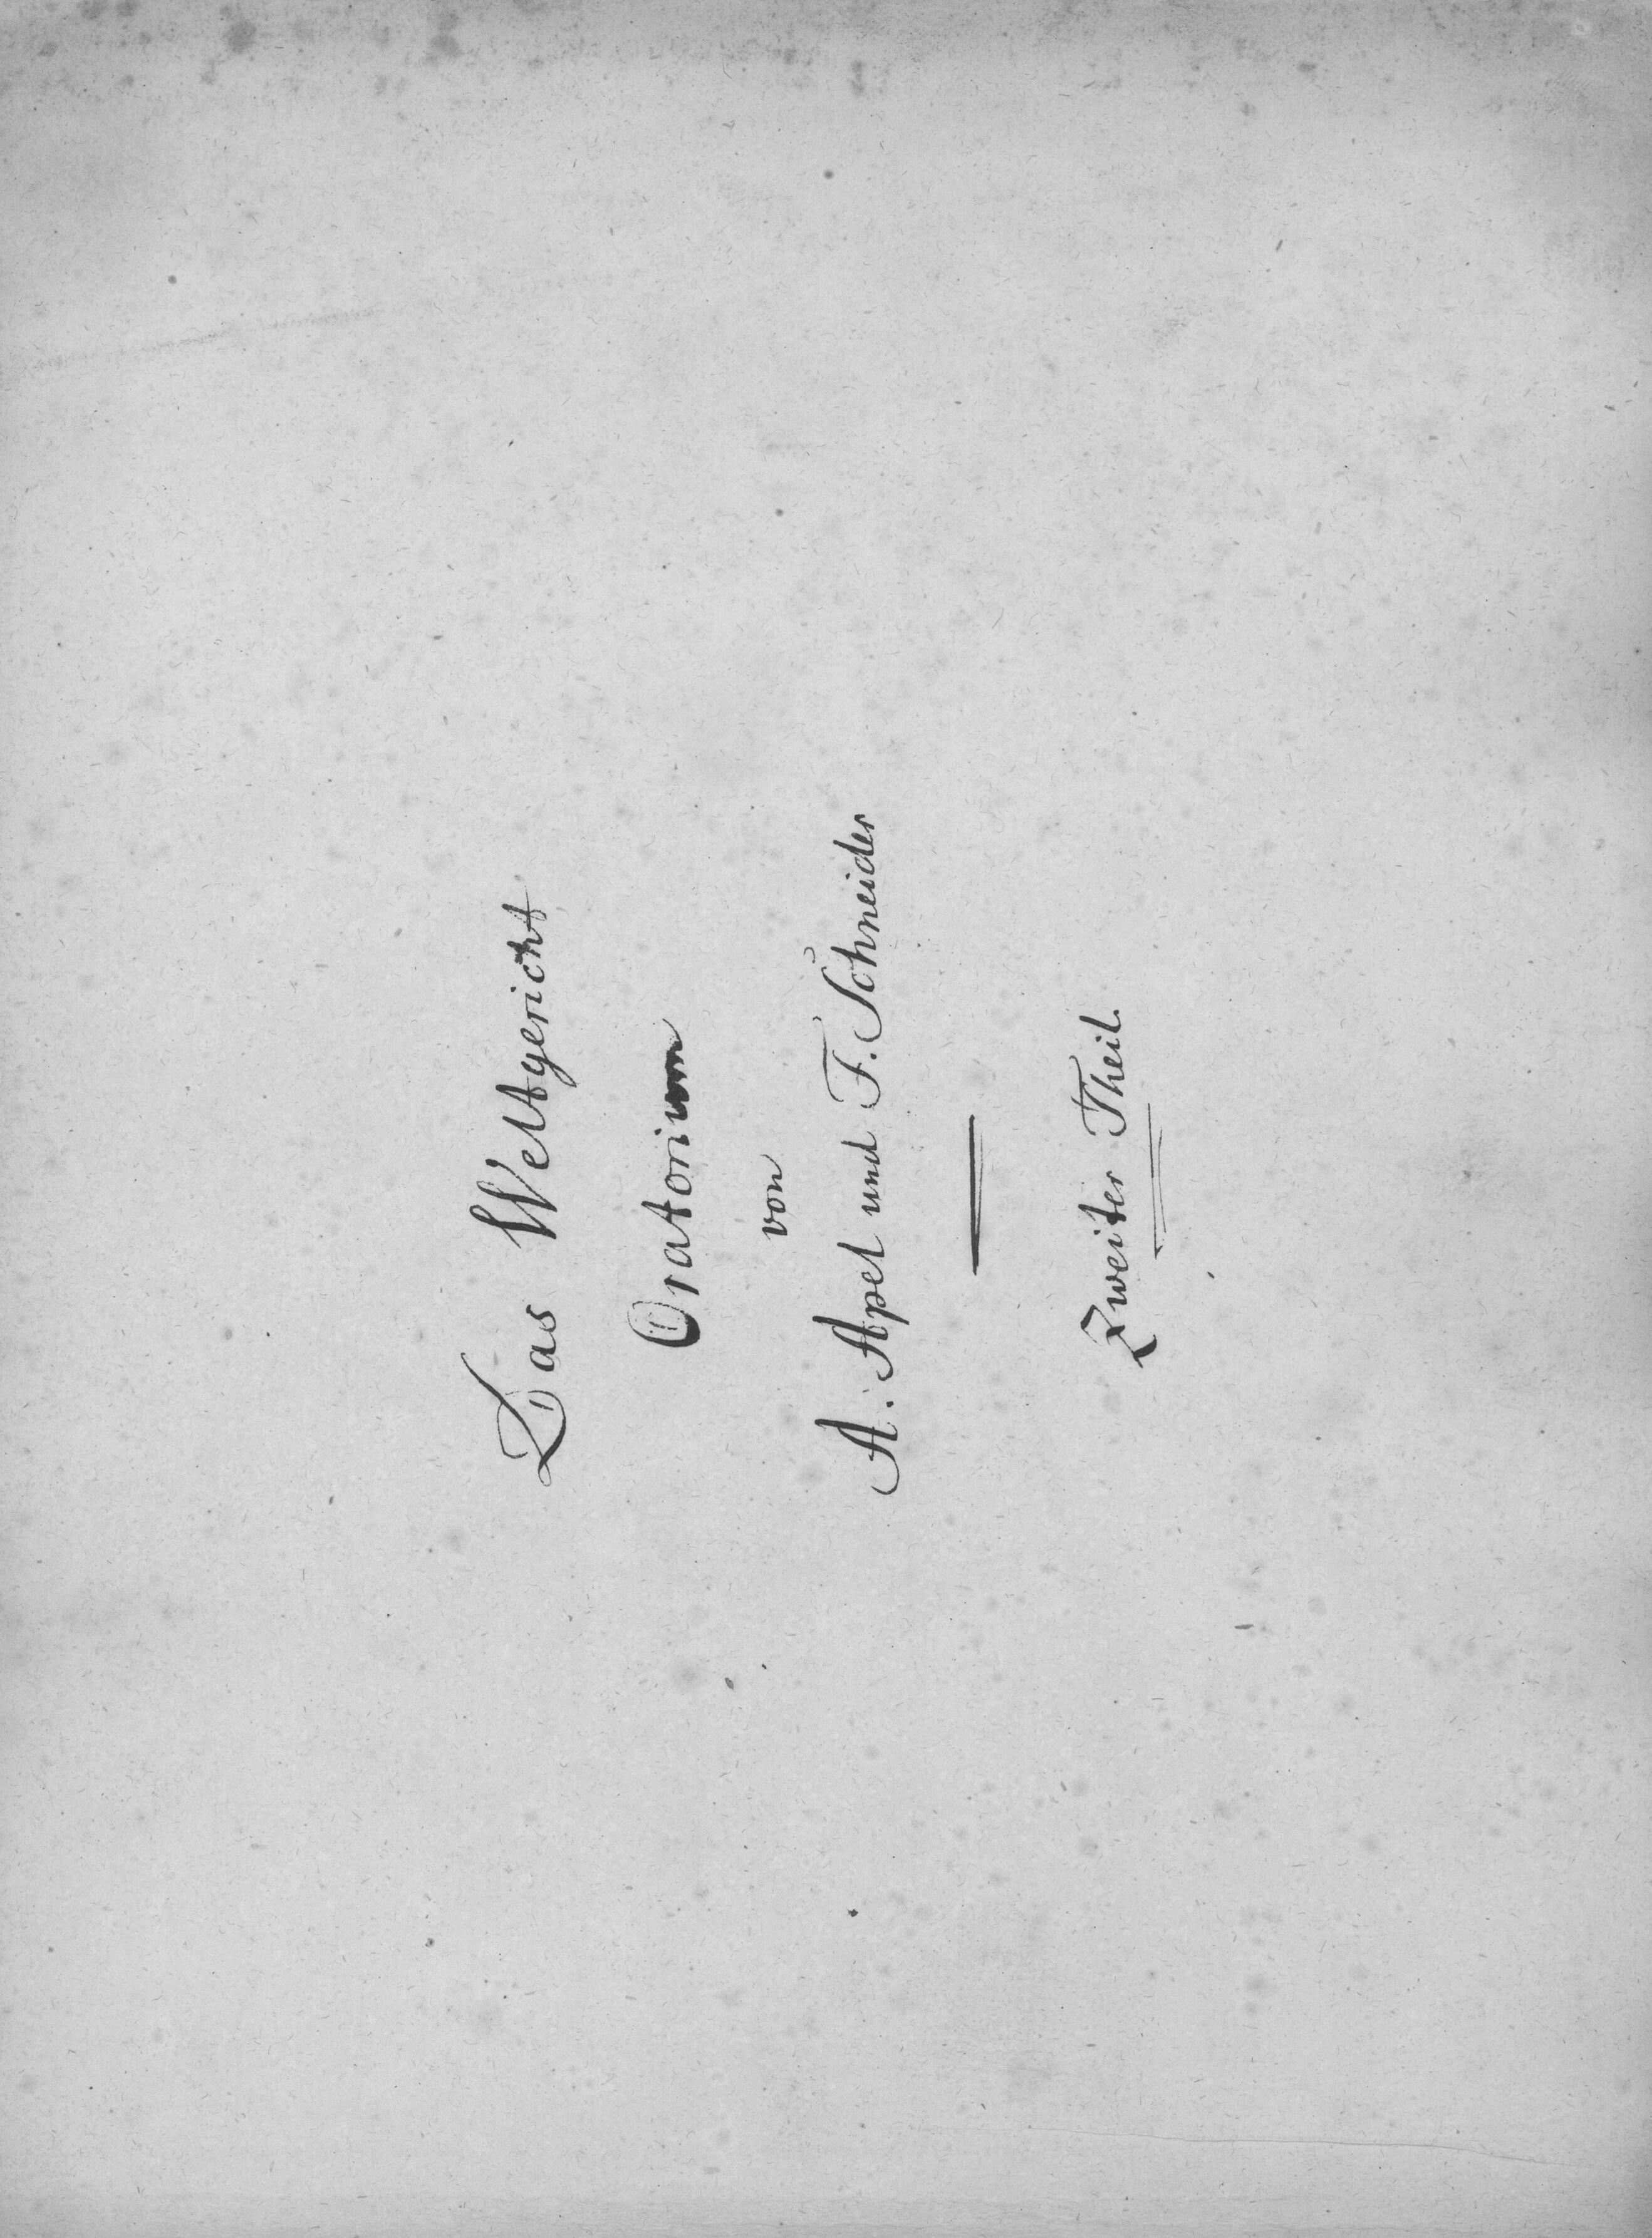 Das Weltgericht
Oratorium
von
A. Apel und F. Schneider
Zweiter Theil.